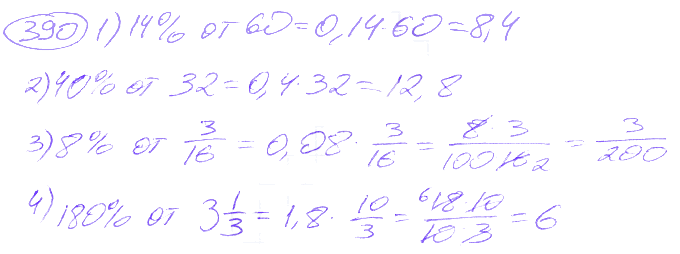 390 1) 14% от 60 = 0,14·60 = 8,4
2) 40% от 32 = 0,4·32 = 12,8
3) 8% от 3/16 = 0,08 · 3/16 = 8·3/100·16 2 = 3/200
4) 180% от 3 1/3 = 1,8 · 10/3 = 6 18·10/10·3 = 6